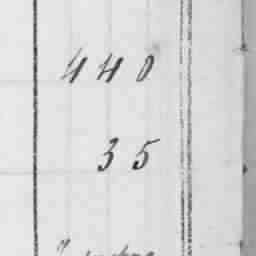 440
35